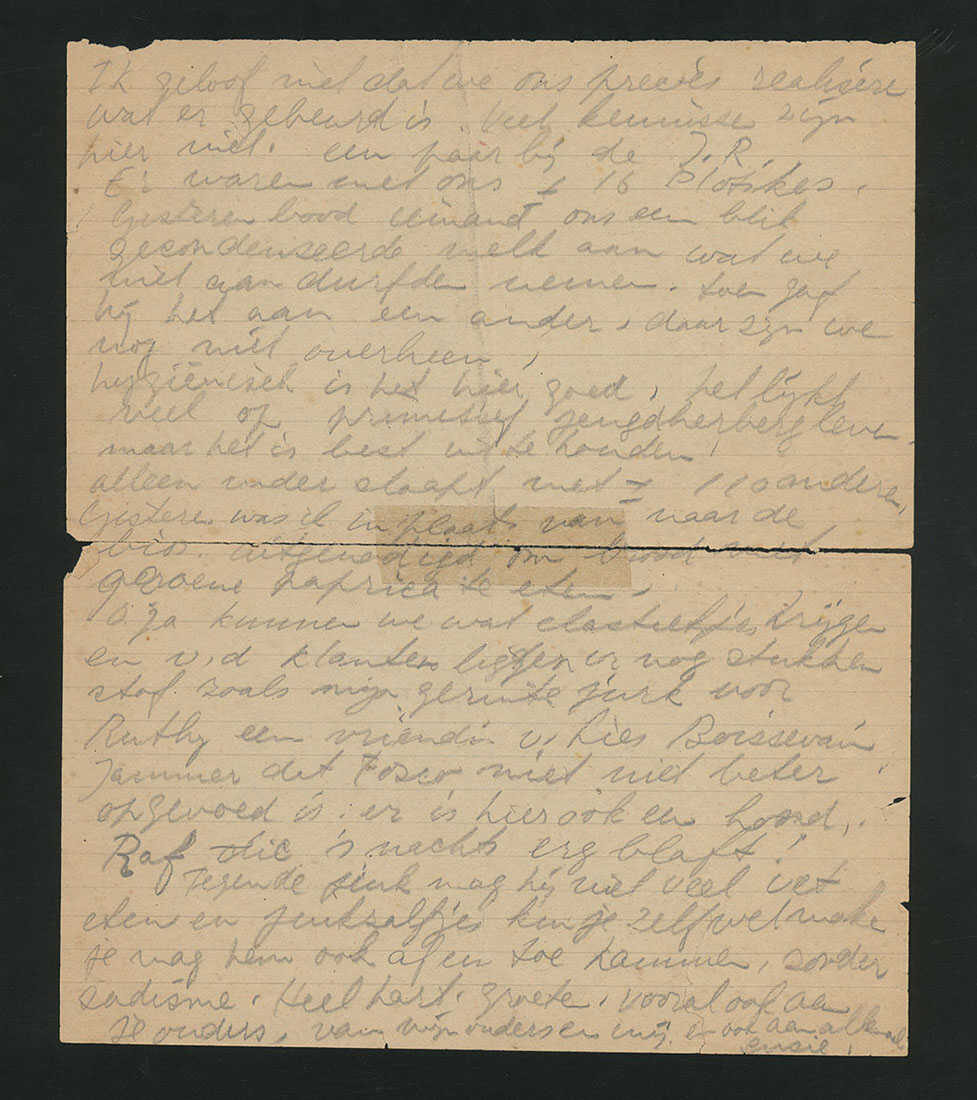 Ik geloof niet dat we ons precies realisere
wat er gebeurd is. Veel kennisse zijn
hier niet. een paar bij de J.R.
Er waren met ons ± 16 Plotskes.
Gisteren bood iemand ons een blik
gecondenseerde melk aan wat we
niet aandurfden nemen. toen gaf
hij het aan een ander, daar zijn we
nog niet overheen,
hygiënisch is het hier goed, het lijkt
veel op primitief jeugdherbergleven
maar het is best uit te houden,
alleen ieder slaapt met ± 110 anderen,
Gisteren was ik in plaats van naar de
bios. uitgenodigd om brood met
groene paprica te eten.
O ja kunnen we wat elastiekjes krijgen
en v.d klanten liggen er nog stukken
stof zoals mijn geruite jurk voor
Ruthy een vriendin v. Lies Boissevain
Jammer dat Fosco niet niet beter
opgevoed is. er is hier ook en hoond,
Raf die 's nachts erg blaft!
Tegen de jeuk mag hij niet veel vet
eten en jeukzalfjes kun je zelf wel make
je mag hem ook af en toe kammen, zonder
sadisme. Heel hart. groete, vooral ook aan
je ouders, van mijn ouders en mij. en ook aan allemaal